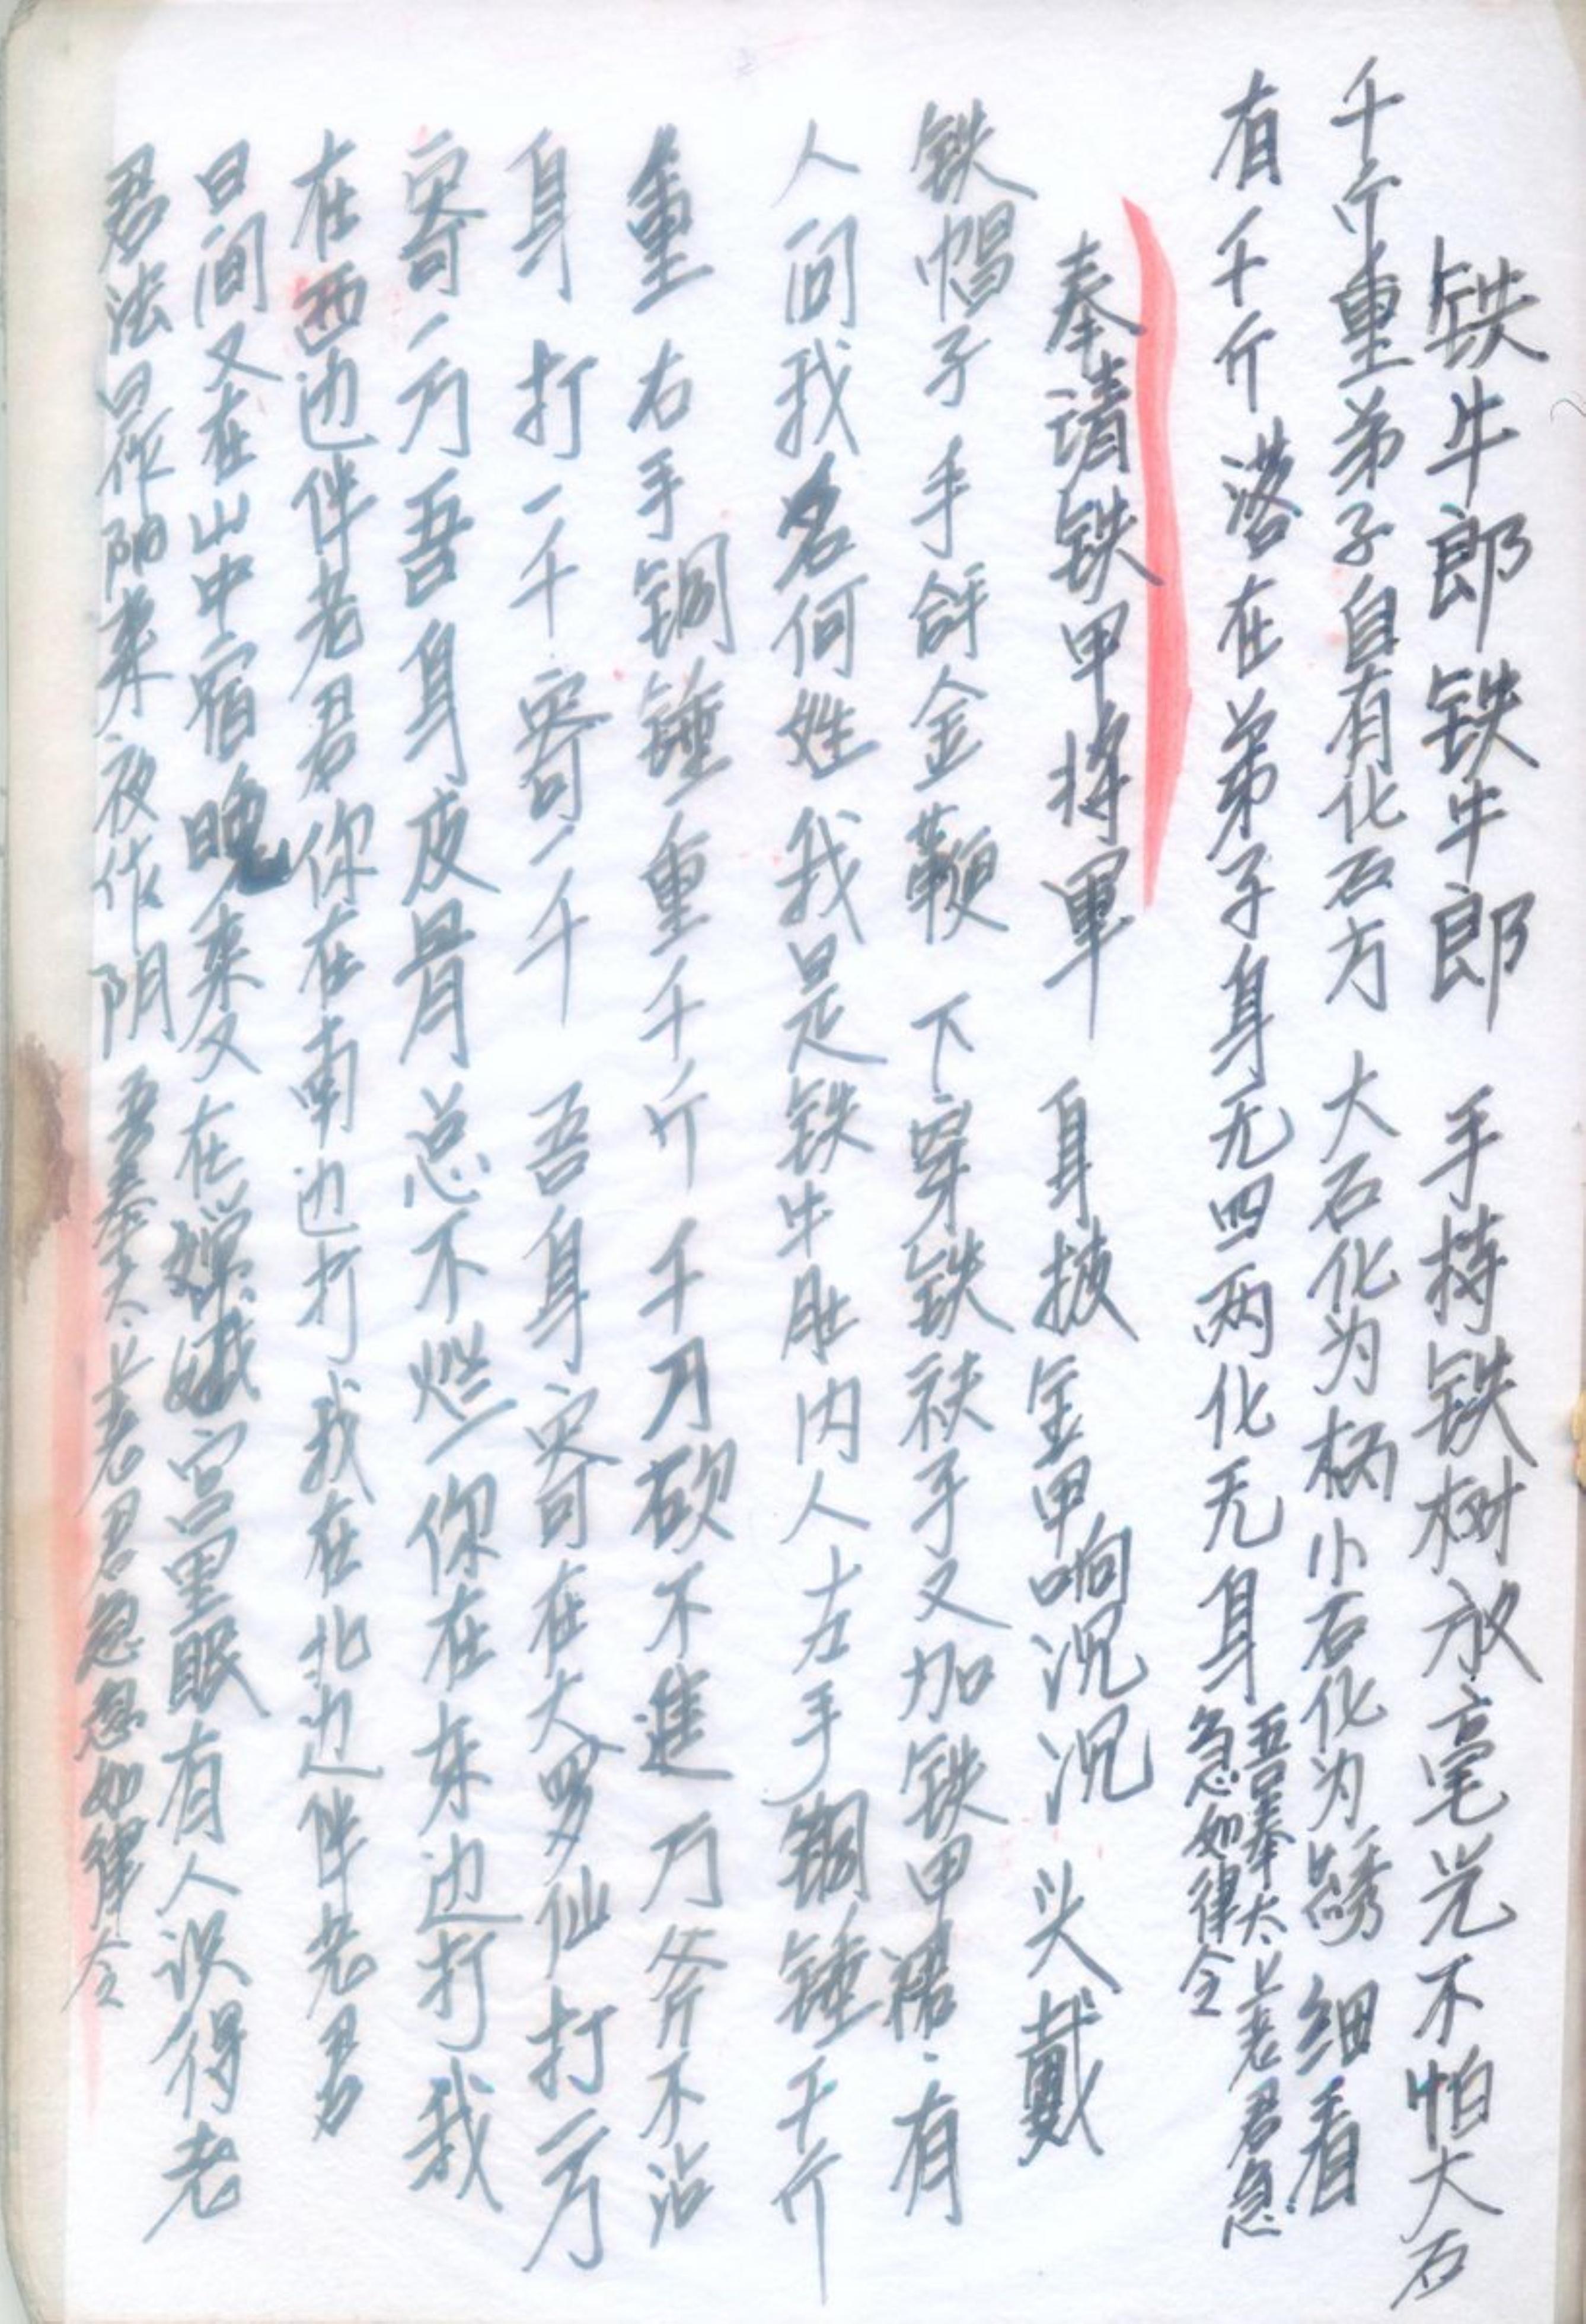 铁牛郎铁牛郎 手持铁树放毫光不怕大石
千斤重弟子自有化石方 大石化为柄小石化为 细看
有千斤落在弟子身身无四两化无身
吾奉太上老君急
急如律令
奉请铁甲将軍 身披金甲响沉沉 头戴
铁帽子手 金鞭 下穿铁袄子又加铁甲裙有
人问我名何姓我是铁牛肚内人左手铜锤千斤
重 右手铜锤重千斤 千刀砍不進万斧不沾
身 打一千寄一千 吾身寄在大罗仙打一万
寄一万吾身皮骨总不烂你在东边打我
在西边伴老君你在南边打我在北边伴老君
日间又在山中宿晚来又在嫦娥宫里眠有人识得老
君法日作阳来夜作阴 吾奉太上老君急急如律令